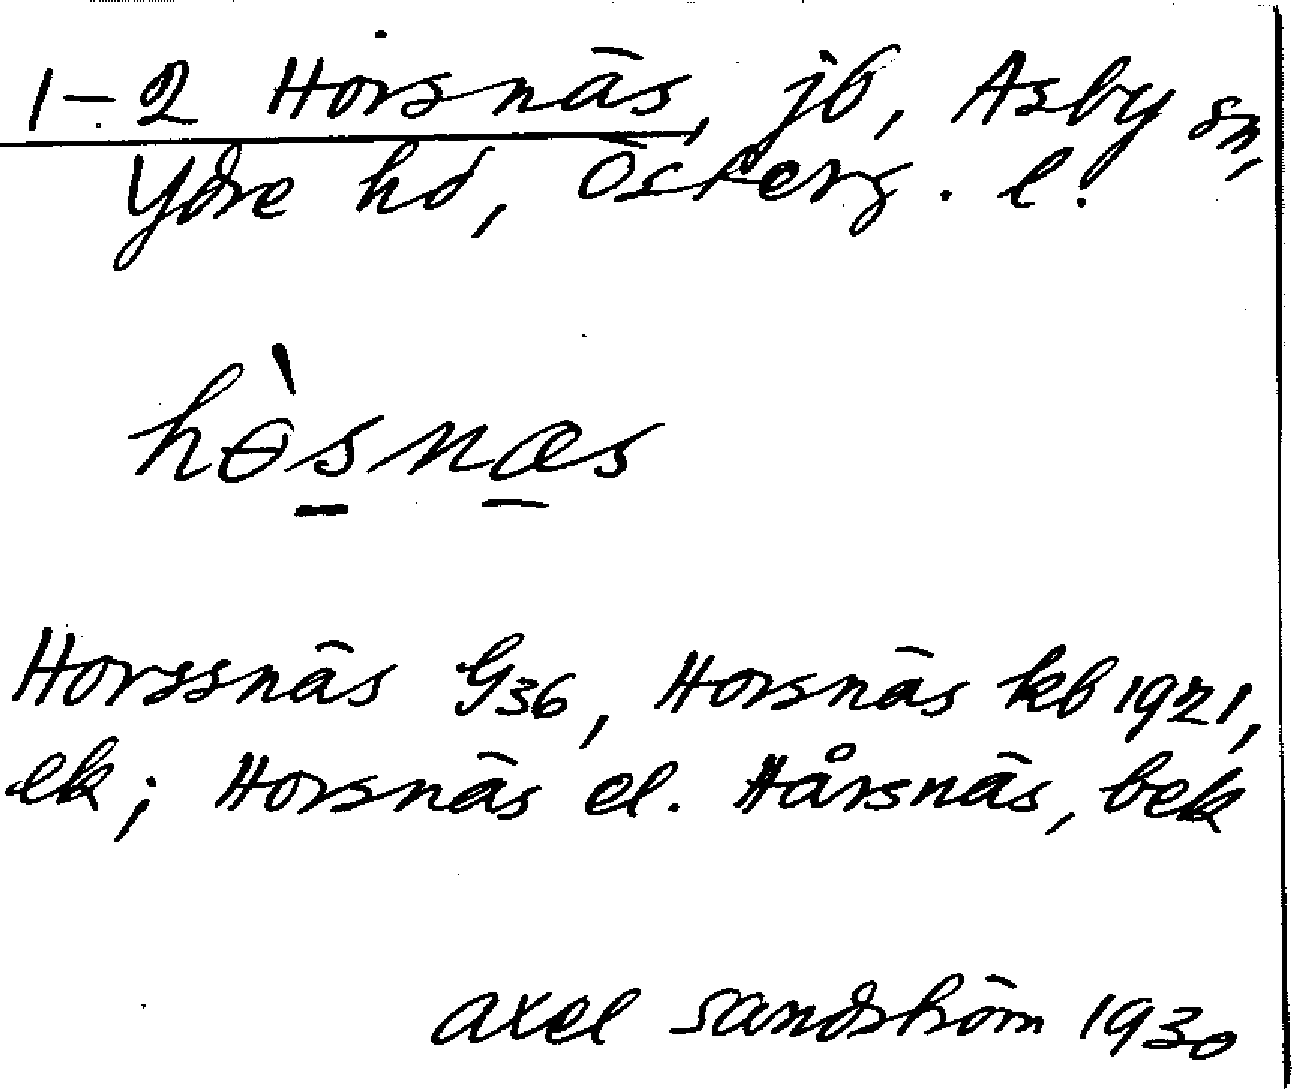 1-2 Horsnäs, jb, Asby sn,
Ydre hd, Österg. l.
hɵ̀snæs
Horssnäs G36, Horsnäs kb 1921,
ek; Horsnäs el. Hårsnäs, bek
axel sandström 1930